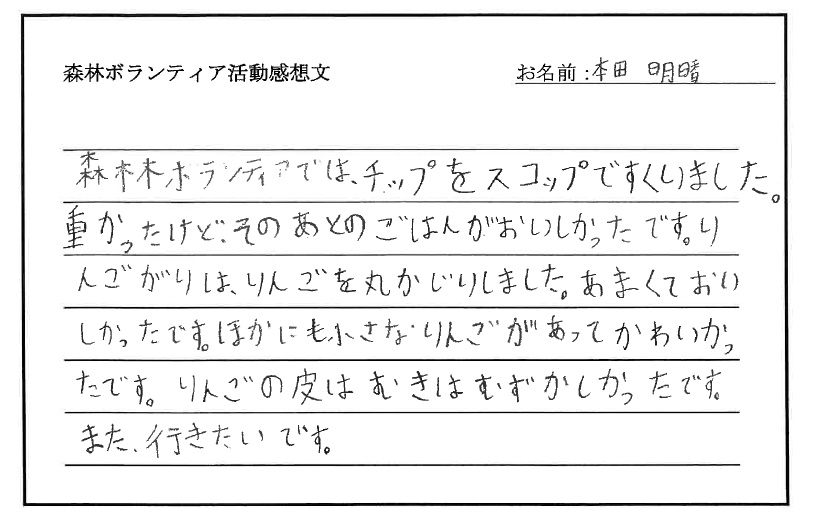 森林ボランティア活動感想文
お名前:本田 明晴
森林ボランティアでは、チップをスコップですくいました。
重かったけど、そのあとのごはんがおいしかったです。り
んごがりは、りんごを丸かじりしました。あまくておい
しかったです。ほかにも小さなりんごがあってかわいかっ
たです。りんごの皮はむきはむずかしかったです。
また、行きたいです。